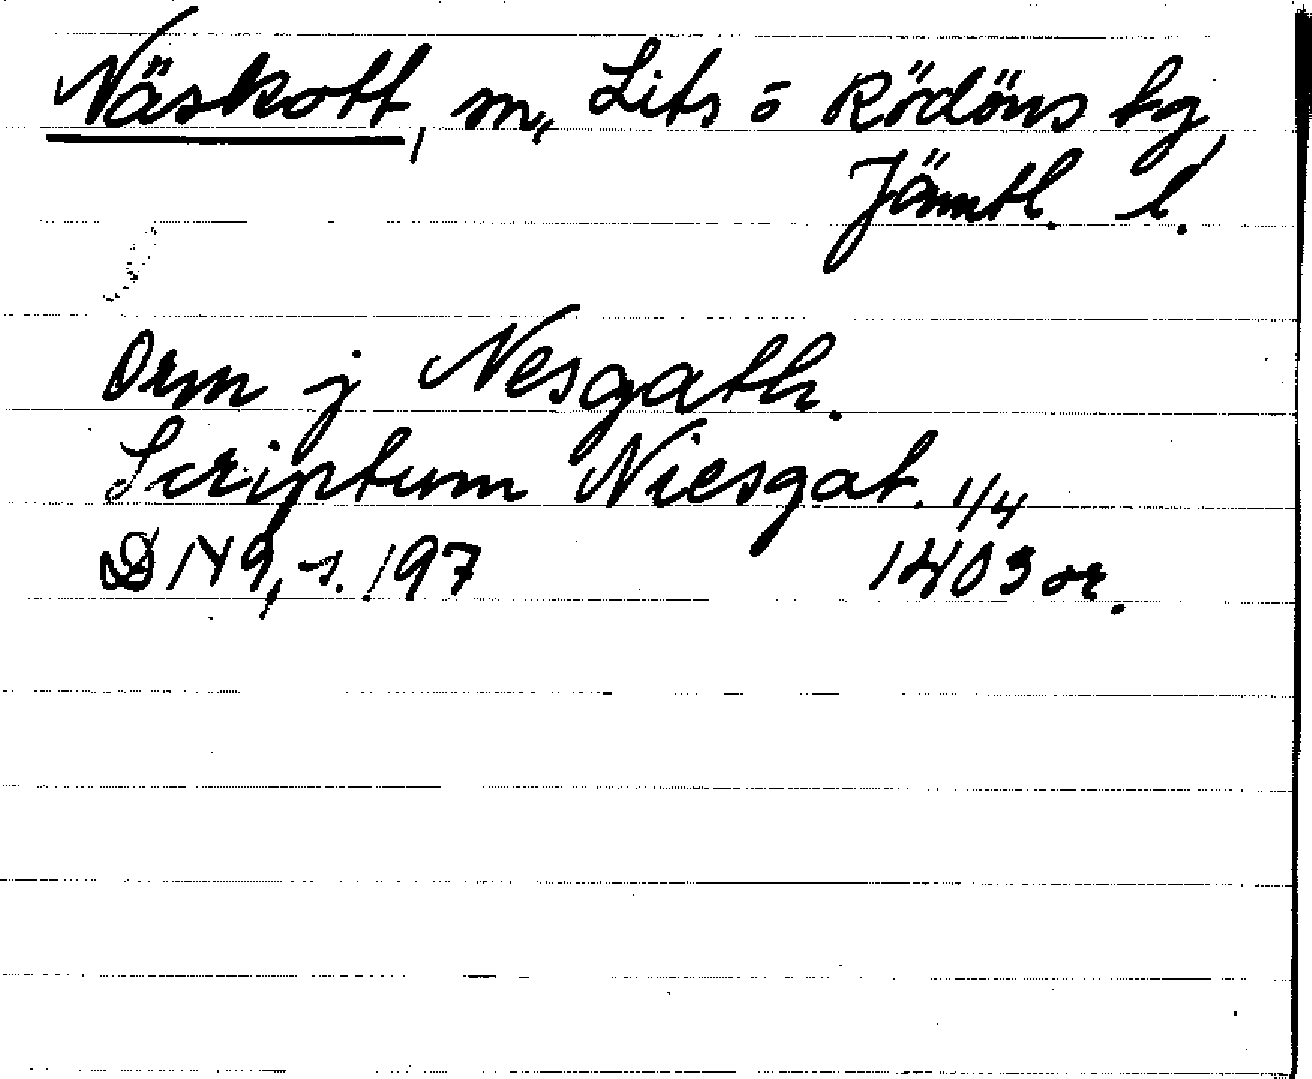 Näskott, sn, Lits o Rödöns tg,
Jämtl. l.
Orm j Nesgath.
Scriptum Niesgat. 1/4
D 149, s. 197 1403 or.